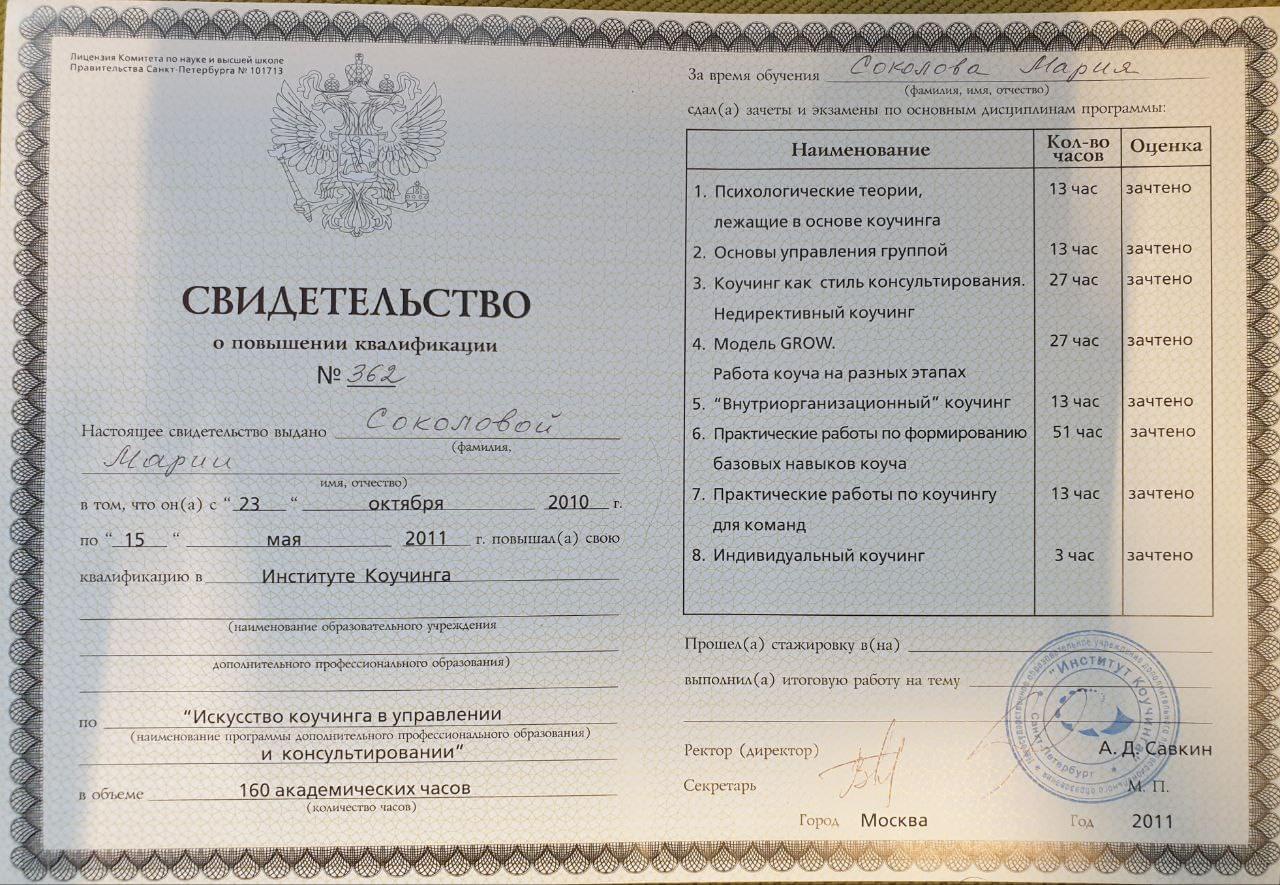 Лицензия Комитета по науке и высшей школе
Правительства Санкт-Петербурга № 101713
СВИДЕТЕЛЬСТВО
о повышении квалификации
№ 362
Настоящее свидетельство выдано Соколовой
(фамилия,
Марии
имя, отчество)
в том, что он(а) с “ 23 “ октября 2010 г.
по “ 15 “ мая 2011 г. повышал(а) свою
квалификацию в Институте Коучинга
(наименование образовательного учреждения
дополнительного профессионального образования)
по “Искусство коучинга в управлении
(наименование программы дополнительного профессионального образования)
и консультировании“
в объеме 160 академических часов
(количество часов)
За время обучения Соколова Мария
(фамилия, имя, отчество)
сдал(а) зачеты и экзамены по основным дисциплинам программы:
Наименование Кол-во часов Оценка
1. Психологические теории, 13 час зачтено
лежащие в основе коучинга
2. Основы управления группой 13 час зачтено
3. Коучинг как стиль консультирования. 27 час зачтено
Недирективный коучинг
4. Модель GROW. 27 час зачтено
Работа коуча на разных этапах
5. “Внутриорганизационный” коучинг 13 час зачтено
6. Практические работы по формированию 51 час зачтено
базовых навыков коуча
7. Практические работы по коучингу 13 час зачтено
для команд
8. Индивидуальный коучинг 3 час зачтено
Прошел(а) стажировку в(на)
выполнил(а) итоговую работу на тему
Ректор (директор) А. Д. Савкин
Секретарь М. П.
Город Москва Год 2011
"Институт Коучинга"
Санкт-Петербург